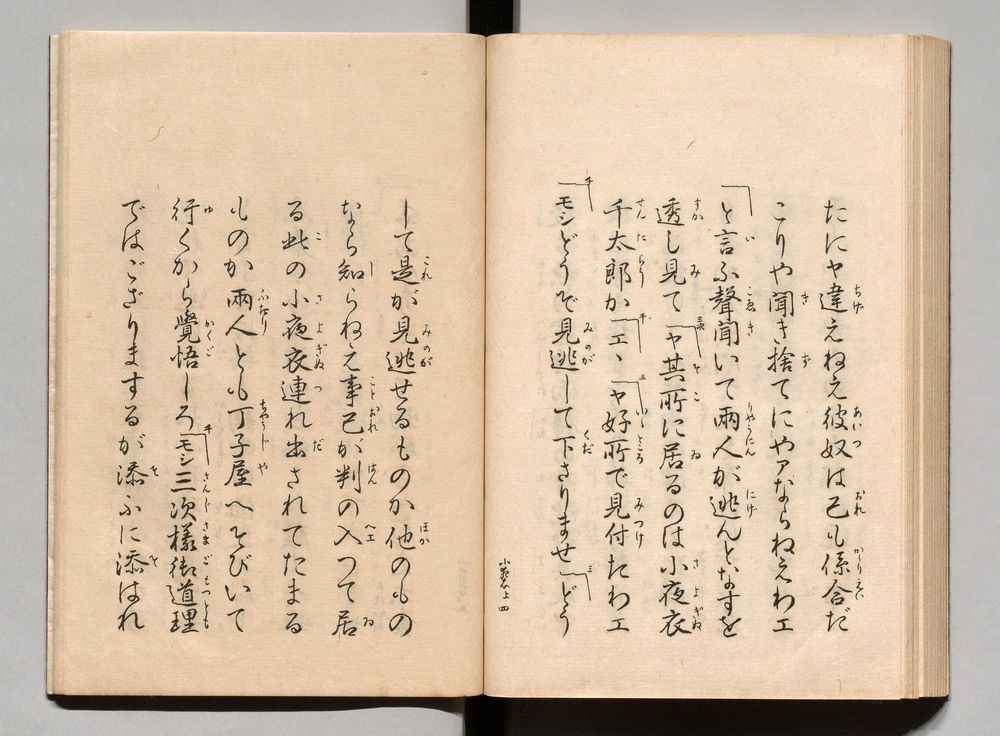 たにヤ違えねえ彼奴は己も係合だ
こりや聞き捨てにやアならねえわエ
と言ふ聲聞いて兩人が逃んとなすを
透し見て ヤ其所に居るのは小夜衣
千太郎か エヽ ヤ好所で見付たわエ
モシどうぞ見逃して下さりませ どう
小夜衣上 四
して是が見逃せるものか他のもの
なら知らねえ事己が判の入つて居
る此の小夜衣連れ出されてたまる
ものか兩人とも丁子屋へそびいて
行くから覺悟しろ モシ三次樣御道理
ではござりまするが添ふに添はれ